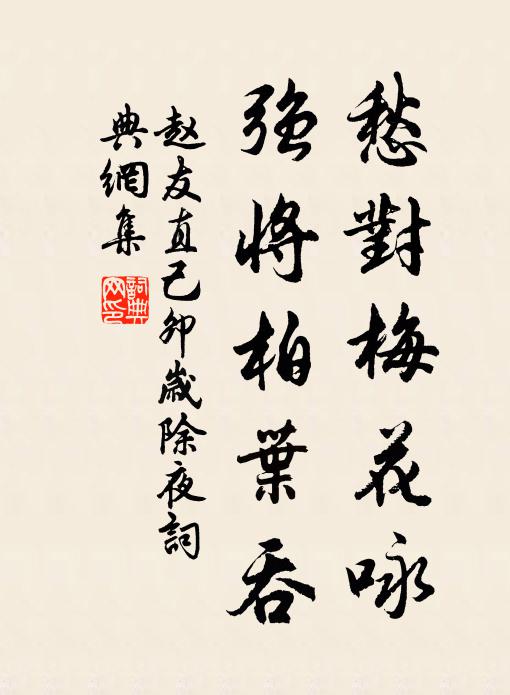 愁對梅花咏
強將柏葉吞
赵友直己卯歲除夜詞
典網集
詞典
网印